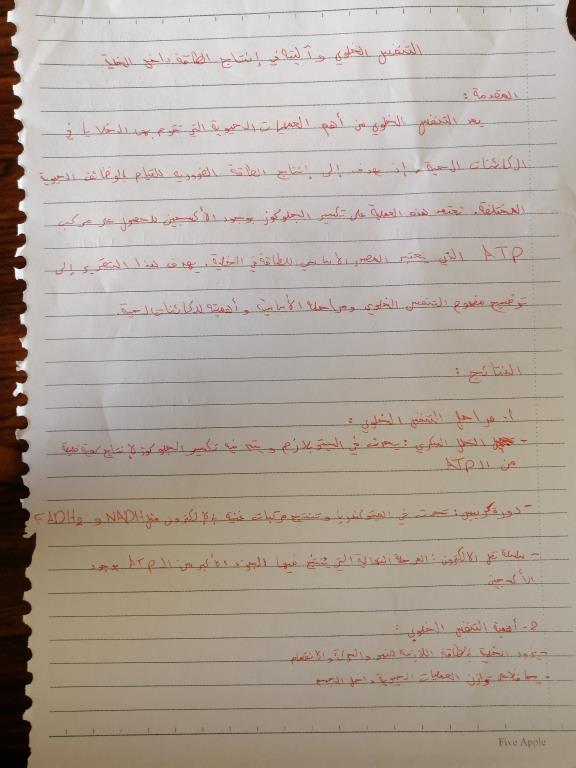 التنفس الخلوي وآليته في إنتاج الطاقة داخل الخلية
المقدمة :
يعد التنفس الخلوي من أهم العمليات الحيوية التي تقوم بها الخلايا في
الكائنات الحية، إذ يهدف إلى إنتاج الطاقة الضرورية للقيام بالوظائف الحيوية
المختلفة. تعتمد هذه العملية على تكسير الجلوكوز بوجود الأكسجين للحصول على مركب
ATP الذي يعتبر المصدر الأساسي للطاقة في الخلية. يهدف هذا التقرير إلى
توضيح مفهوم التنفس الخلوي ومراحله الأساسية وأهميته للكائنات الحية.
النتائج :
1. مراحل التنفس الخلوي :
- التحلل السكري : يحدث في السيتوبلازم ويتم فيه تكسير الجلوكوز لإنتاج كمية قليلة
من الـ ATP
- دورة كريبس : تحدث في الميتوكندريا وتنتج مركبات غنية بالإلكترون مثل NADH و FADH2
- سلسلة نقل الالكترون : المرحلة النهائية التي ينتج فيها الجزء الأكبر من الـ ATP بوجود
الأكسجين
2- أهمية التنفس الخلوي :
- يزود الخلية بالطاقة اللازمة للنمو والحركة والانقسام
- يساهم توازن العمليات الحيوية داخل الجسم
Five Apple